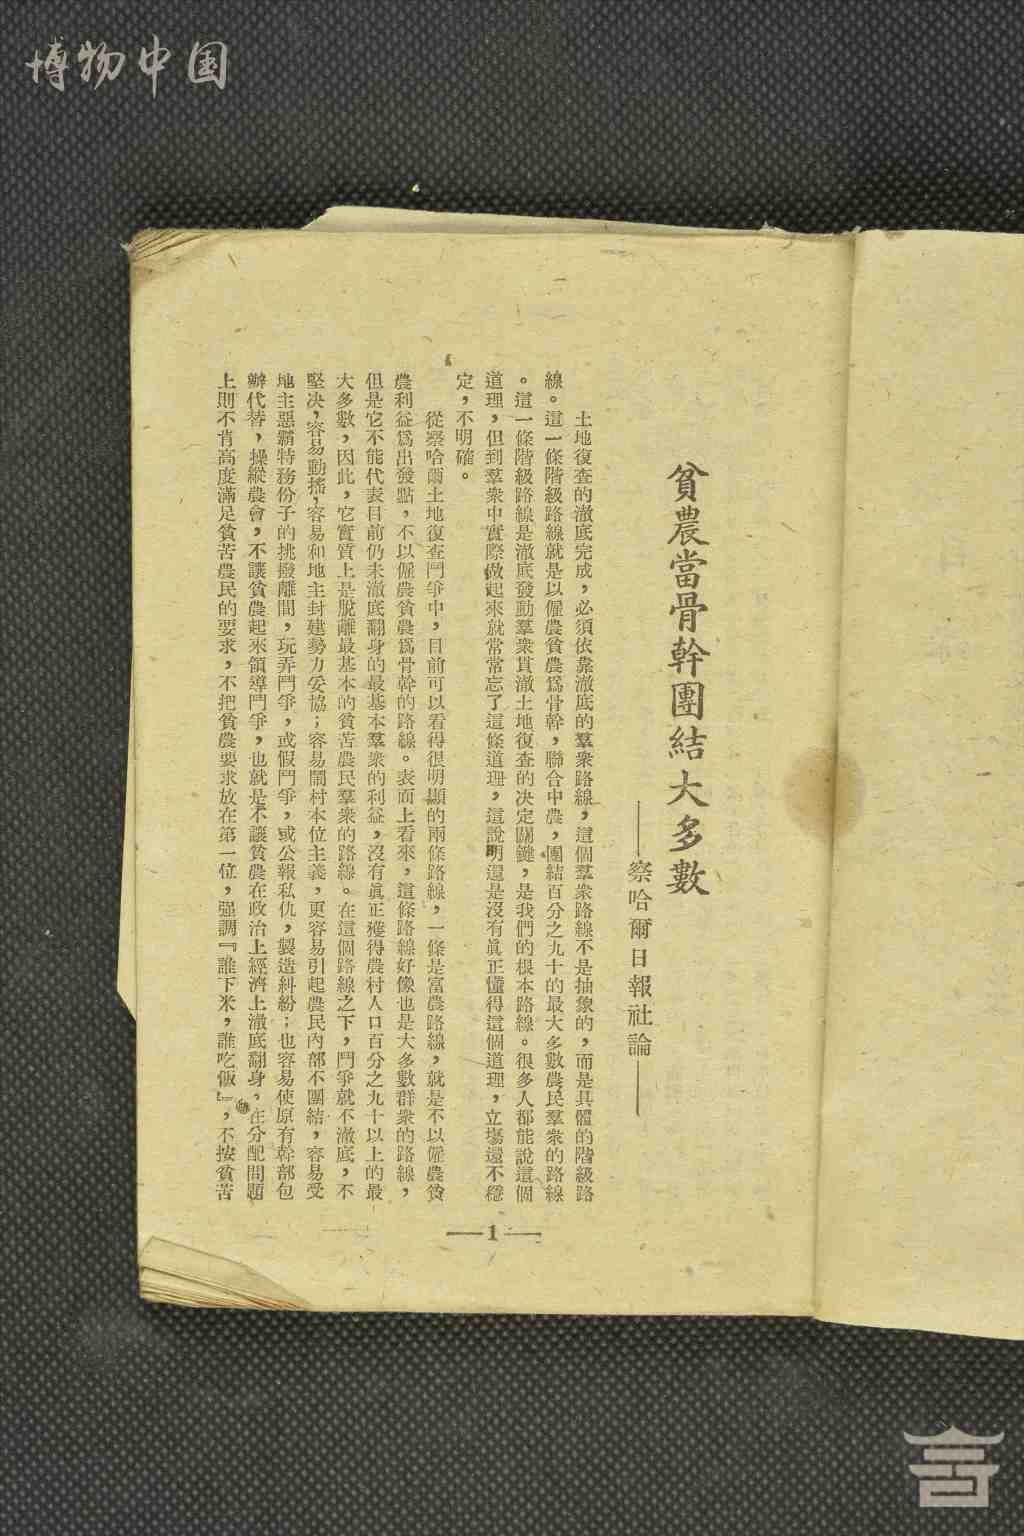 博物中国
貧農當骨幹團結大多數
——察哈爾日報社論——
土地復查的澈底完成，必須依靠澈底的羣衆路線，這個羣衆路線不是抽象的，而是具體的階級路
線。這一條階級路線就是以僱農貧農爲骨幹，聯合中農，團結百分之九十的最大多數農民羣衆的路線
。這一條階級路線是澈底發動羣衆貫澈土地復查的决定關鍵，是我們的根本路線。很多人都能說這個
道理，但到羣衆中實際做起來就常常忘了這條道理，這說明還是沒有眞正懂得這個道理，立塲還不穩
定，不明確。
從察哈爾土地復查鬥爭中，目前可以看得很明顯的兩條路線，一條是富農路線，就是不以僱農貧
農利益爲出發點，不以僱農貧農爲骨幹的路線。表面上看來，這條路線好像也是大多數群衆的路線，
但是它不能代表目前仍未澈底翻身的最基本羣衆的利益，沒有眞正獲得農村人口百分之九十以上的最
大多數，因此，它實質上是脫離最基本的貧苦農民羣衆的路線。在這個路線之下，鬥爭就不澈底，不
堅决，容易動搖，容易和地主封建勢力妥協；容易鬧村本位主義，更容易引起農民內部不團結，容易受
地主惡霸特務份子的挑撥離間，玩弄鬥爭，或假鬥爭，或公報私仇，製造糾紛；也容易使原有幹部包
辦代替，操縱農會，不讓貧農起來領導鬥爭，也就是不讓貧農在政治上經濟上澈底翻身。在分配問題
上則不肯高度滿足貧苦農民的要求，不把貧農要求放在第一位，强調『誰下米，誰吃飯』，不按貧苦
—1—